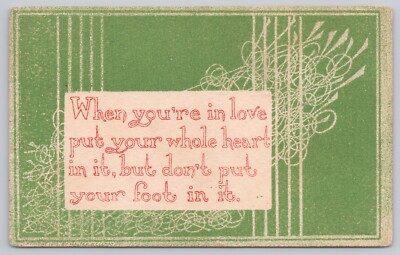 When you're in love
put your whole heart
in it, but don't put
your foot in it.